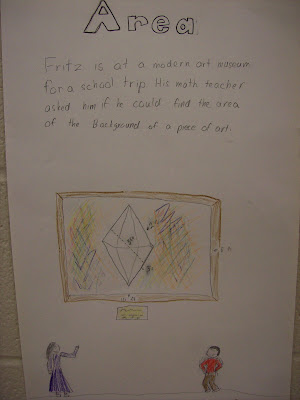 Area
Fritz is at a modern art museum
for a school trip. His math teacher
asked him if he could find the area
of the Background of a piece of art.